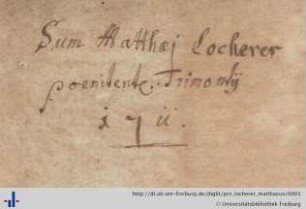 Sum Matthæj Locherer
poenitentc. Trimonlÿ
1711.
http://dl.ub.uni-freiburg.de/diglit/pro_locherer_matthaeus/0001
© Universitätsbibliothek Freiburg